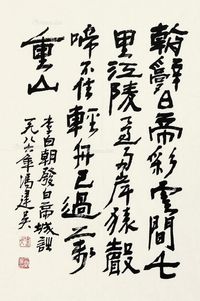 朝辭白帝彩雲間千
里江陵兩岸猿聲
啼不住輕舟已過萬
重山
李白朝發白帝城詩
一九八六年馮建吳